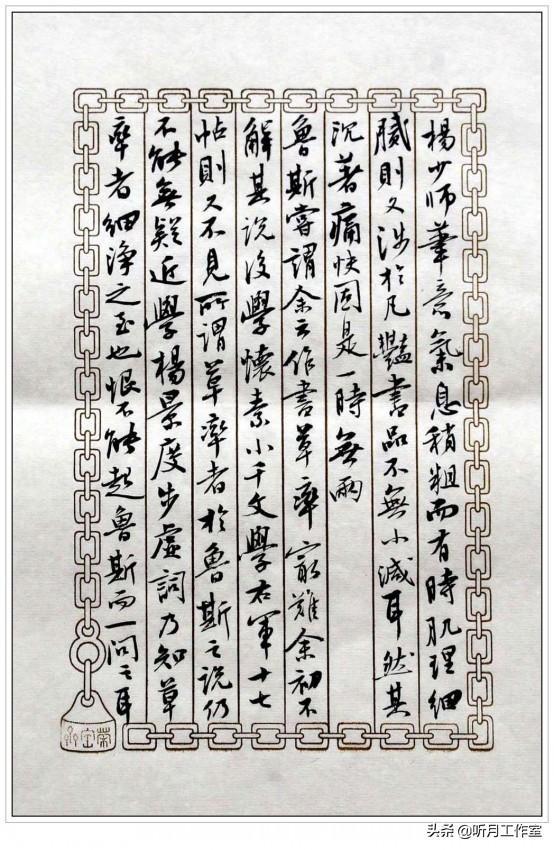 楊少師筆意氣息稍粗而有時肌理細
膩則又涉於凡豔書品不無小減耳然其
沉著痛快固是一時無兩
魯斯嘗謂余云作書草率最難余初不
解其說後學懷素小千文學右軍十七
帖則又不見所謂草率者於魯斯之說仍
不能無疑近學楊景度步虛詞乃知草
率者細淨之至也恨不能起魯斯而一問之耳
榮宝
头条 @听月工作室